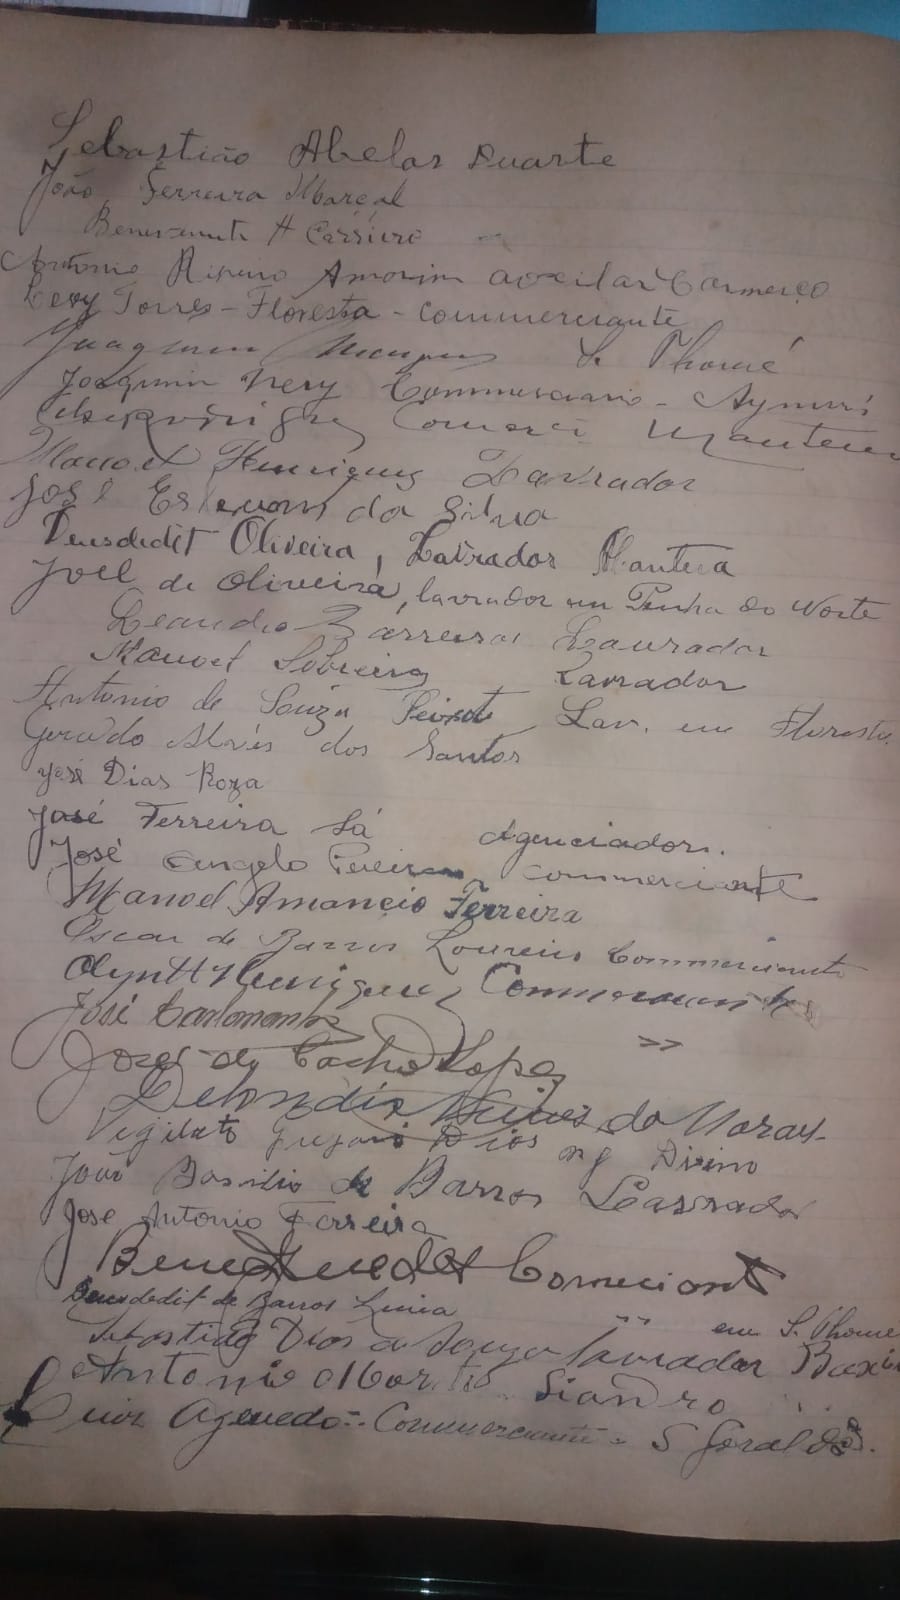 Sebastião Abelar Duarte
João Ferreira Marçal
Benevenute H Carriere
Antonio Amorim auxiliar Comerço
Levy Torres - Floresta - Commerciante
Joaquim S. Thomé
Joaquim Nery Commerciario - Aymoré
Rodrigues Comerci Mantena
Manoel Henriques Lavrador
José Estevam da Silva
Deusdedit Oliveira, Lavrador Mantena
Joel de Oliveira, lavrador em Penha do Norte
Leandro Barreiros Lavrador
Manoel Sobreira Lavrador
Antonio de Souza Peixot Lav. em Floresta
Geraldo Alves dos Santos
José Dias Roza
José Ferreira Sá Agenciador.
José Angelo Pereira commerciante
Manoel Amancio Ferreira
Oscar de Barros Loureiro Commerciante
Olyntt Henriques Commerciante
José
José de Lopes >>
Nunes de Moraes
Dias Divino
João Basilio de Barros Lavrador
José Antonio Ferreira
Comerciant
Deusdedit de Barros Lima " " em S. Thomé
Sebastião Dias de Souza lavrador
Antonio
Luiz Azevedo - Commerciante - S Geraldo.